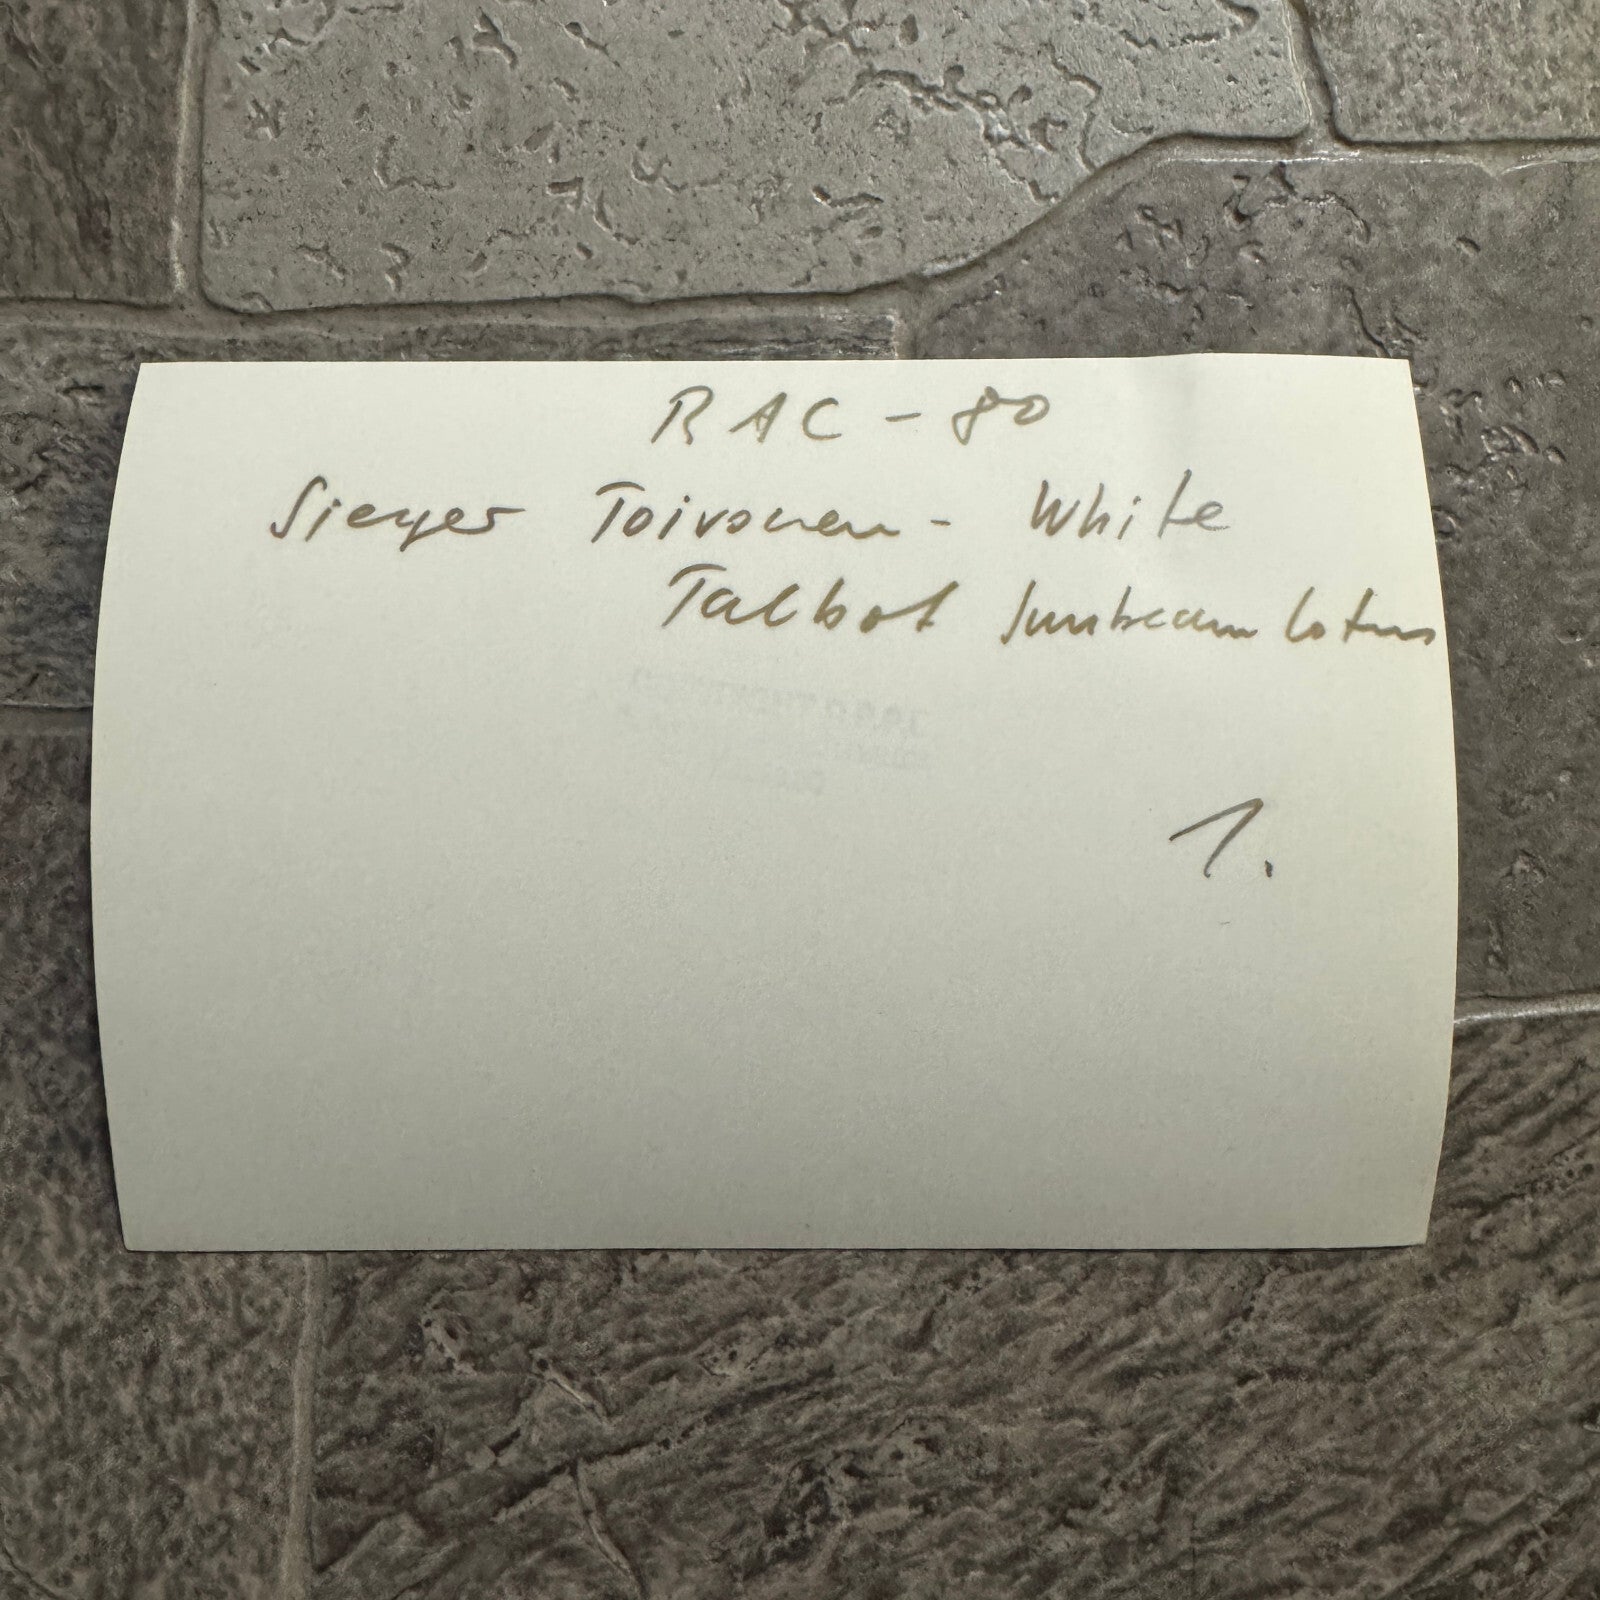 RAC - 80
Sieger Toivonen - White
Talbot Sunbeam Lotus
1.